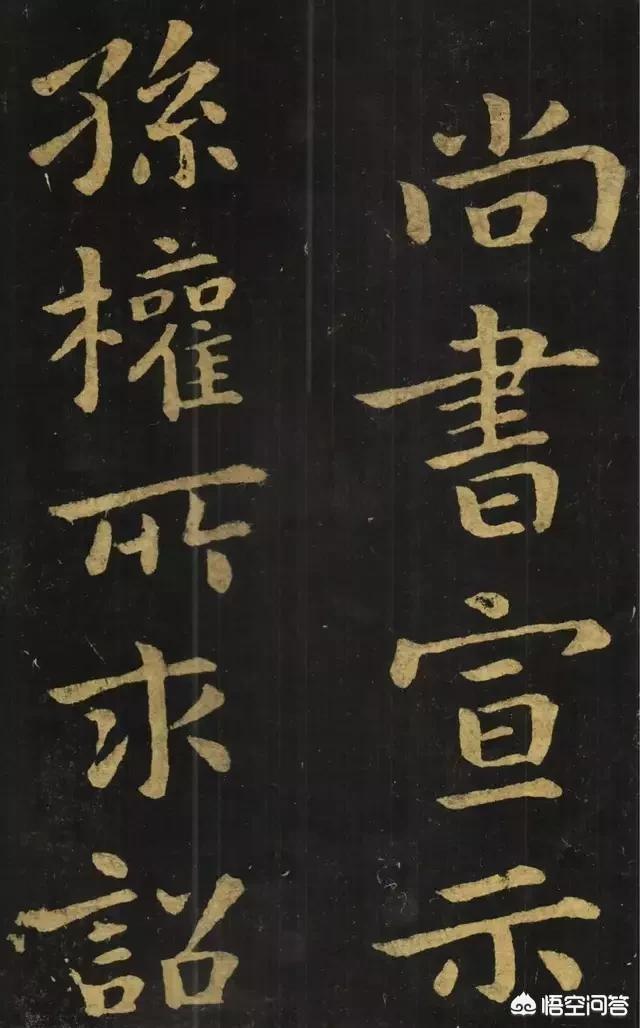 尚書宣示
孫權所求詔
悟空问答